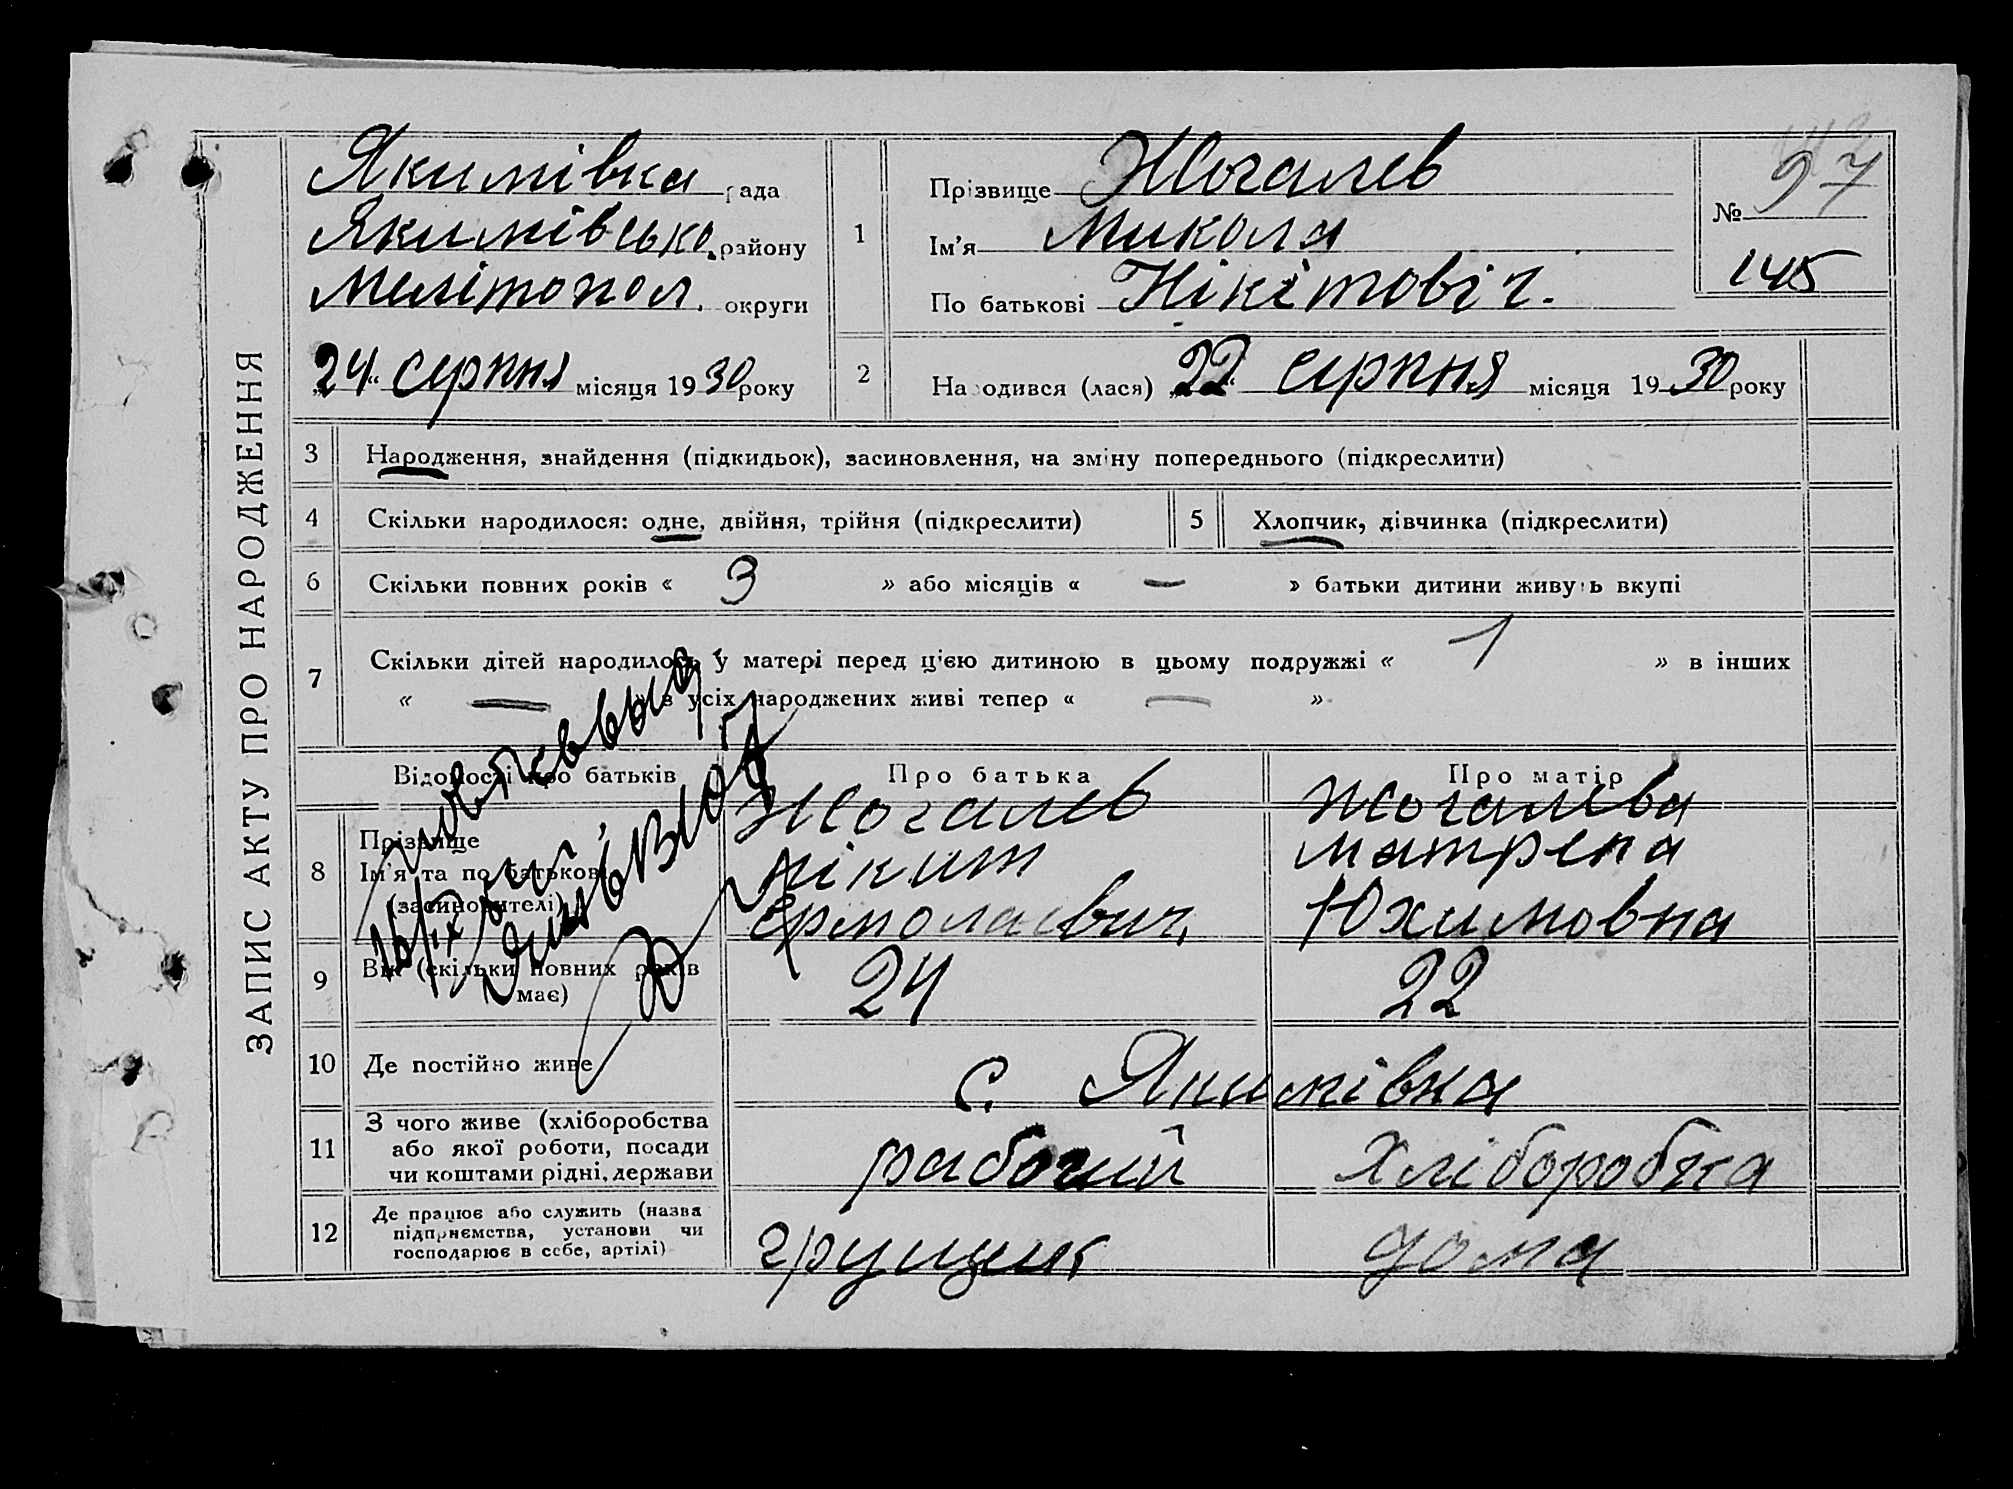 ЗАПИС АКТУ ПРО НАРОДЖЕННЯ
Якимівка рада
Якимівсько району
Мелітопол. округи
„24“ серпня місяця 1930 року
1
Прізвище Жогалев
Ім'я Микола
По батькові Нікітовіч.
№ 97
145
2
Народився (лася) „22“ серпня місяця 1930 року
3 Народження, знайдення (підкидьок), засиновлення, на зміну попереднього (підкреслити)
4 Скільки народилося: одне, двійня, трійня (підкреслити)
5 Хлопчик, дівчинка (підкреслити)
6 Скільки повних років « 3 » або місяців « — » батьки дитини живуть вкупі
7 Скільки дітей народилось у матері перед цією дитиною в цьому подружжі « 1 » в інших
« — » в усіх народжених живі тепер « — »
Відомості про батьків
Про батька
Про матір
8 Прізвище
Ім'я та по батькові
(засиновителі)
Жогалев
Нікит
Ермолаевич,
Жогалева
Матрена
Юхимовна
9 Вік (скільки повних років
має)
24
22
10 Де постійно живе
с. Якимівка
11 З чого живе (хліборобства
або якої роботи, посади
чи коштами рідні, держави
рабочий
Хліборобка
12 Де працює або служить (назва
підприємства, установи чи
господарює в себе, артілі)
грущик
дома